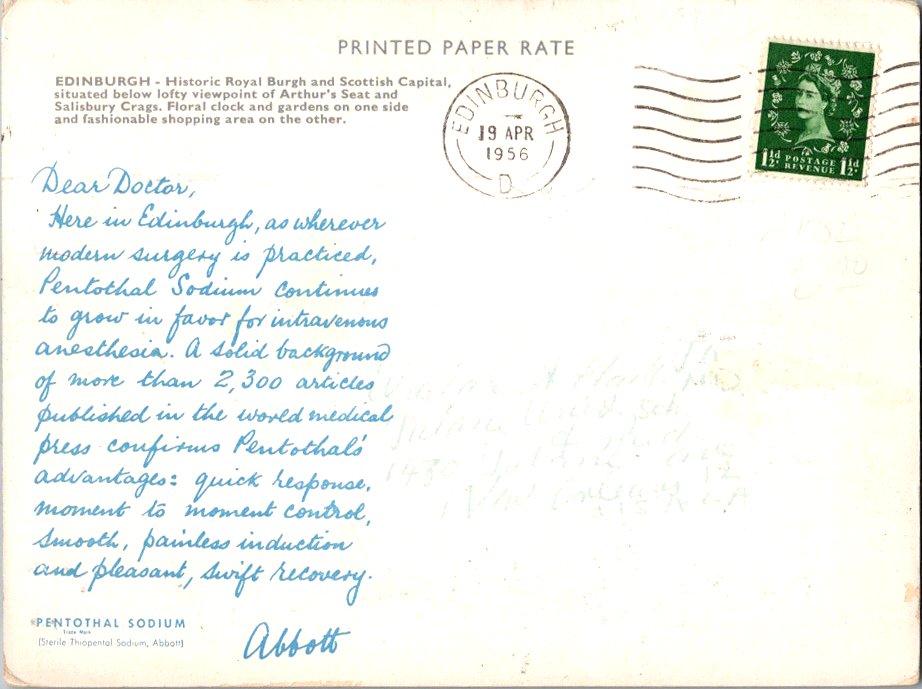 PRINTED PAPER RATE
EDINBURGH - Historic Royal Burgh and Scottish Capital,
situated below lofty viewpoint of Arthur's Seat and
Salisbury Crags. Floral clock and gardens on one side
and fashionable shopping area on the other.
EDINBURGH
19 APR
1956
D
1½d. POSTAGE REVENUE 1½d.
Dear Doctor,
Here in Edinburgh, as wherever
modern surgery is practiced,
Pentothal Sodium continues
to grow in favor for intravenous
anesthesia. A solid background
of more than 2,300 articles
published in the world medical
press confirms Pentothal's
advantages: quick response,
moment to moment control,
smooth, painless induction
and pleasant, swift recovery.
Abbott
PENTOTHAL SODIUM
Trade Mark
(Sterile Thiopental Sodium, Abbott)
1430
New Orleans 12